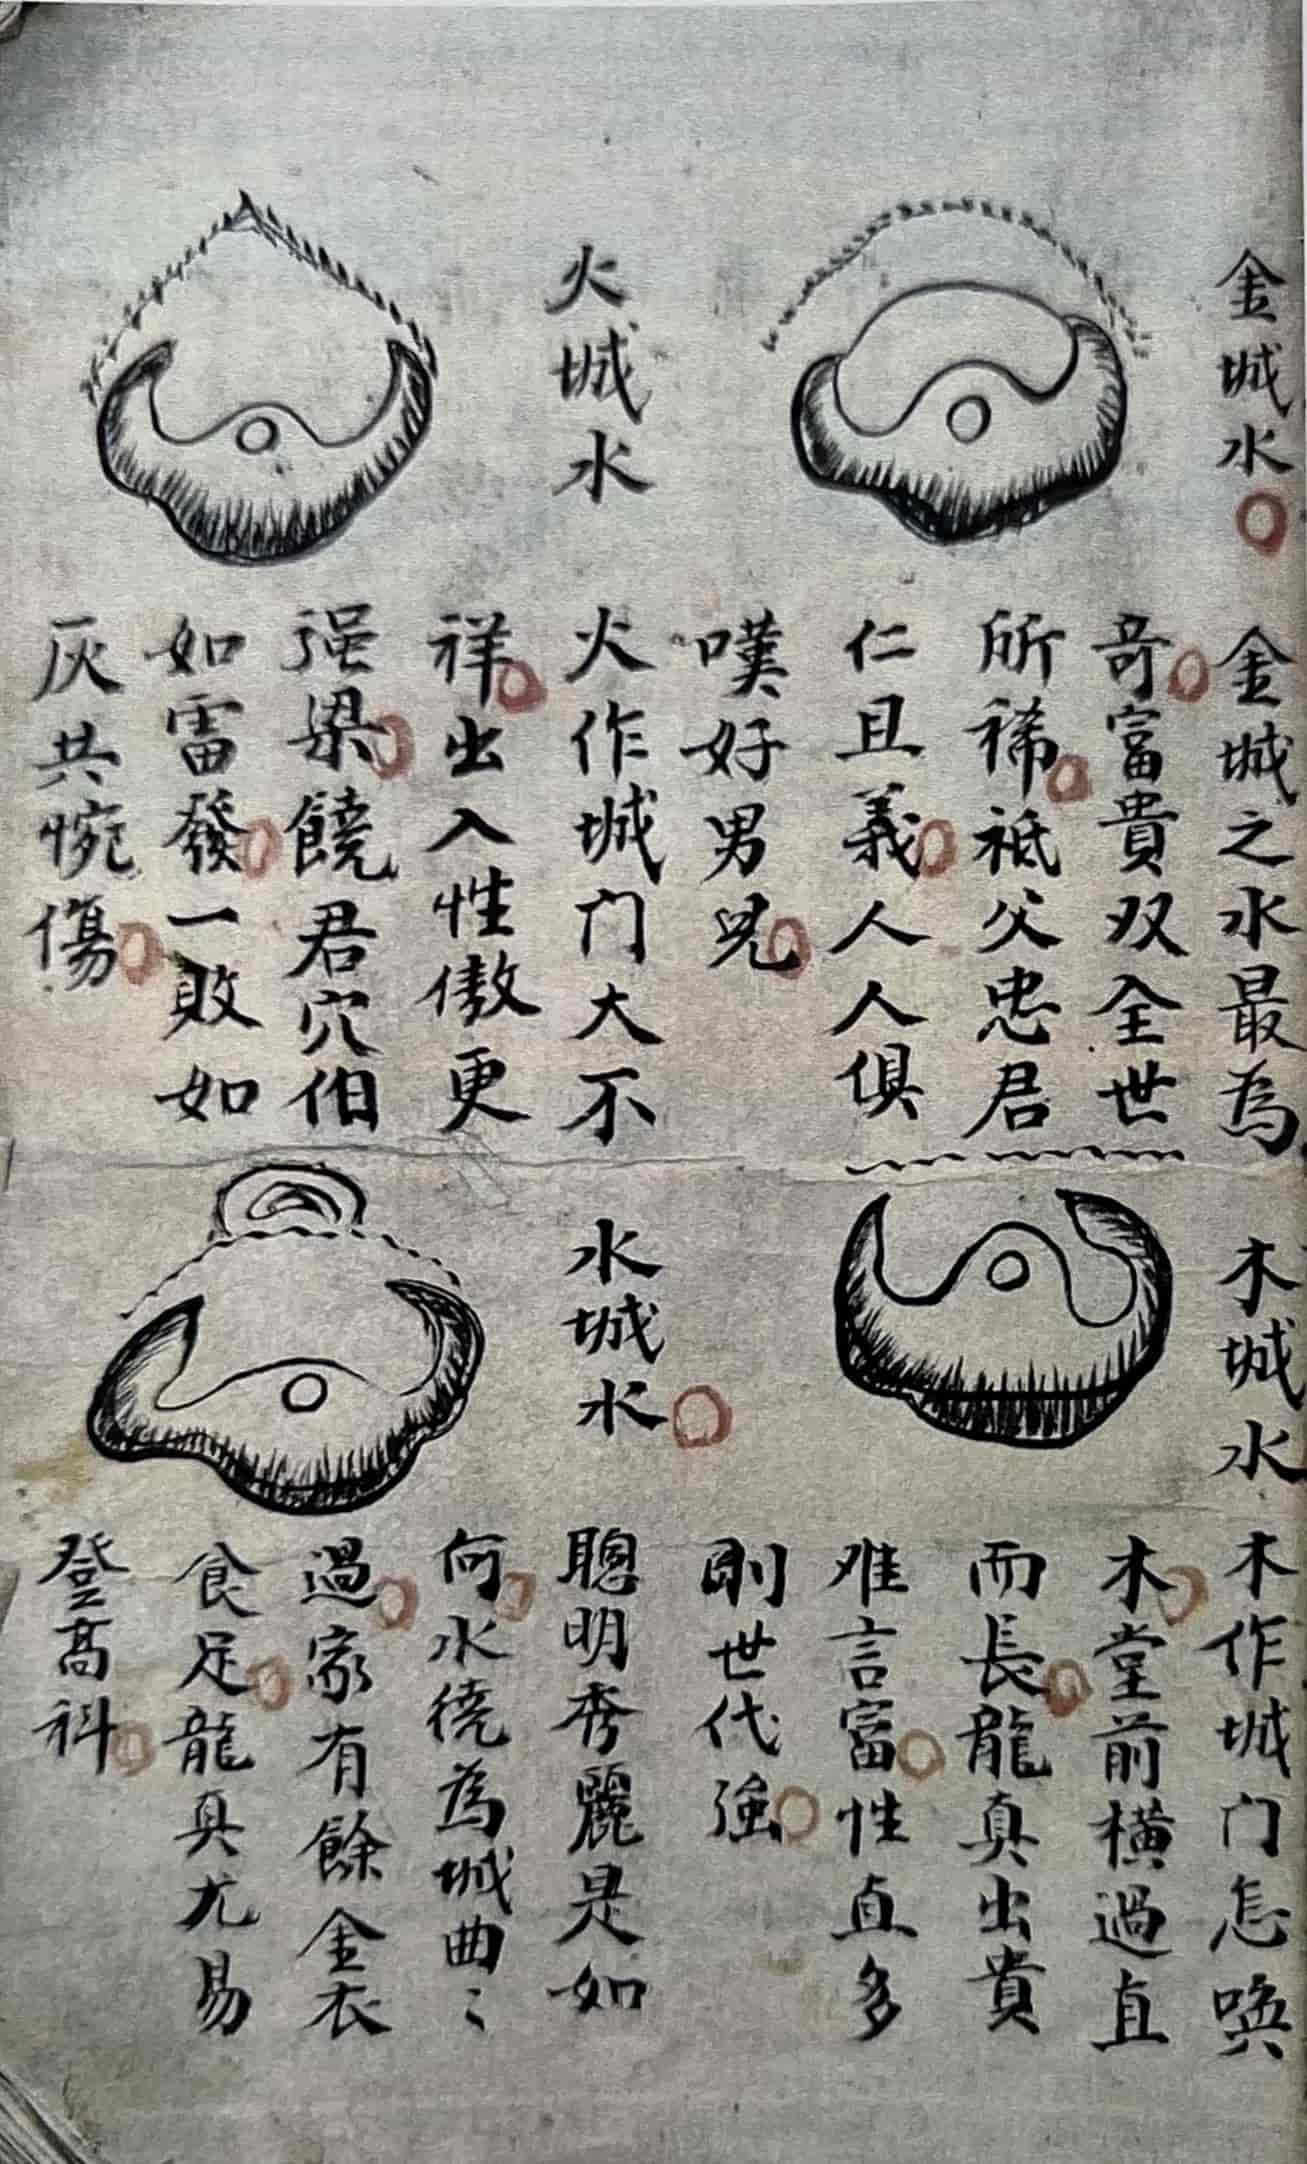 金城水
金城之水最為
奇富貴双全世
所稀祗父忠君
仁且義人人俱
嘆好男児
火城水
火作城门大不
祥出入性傲更
强梁饒君穴伯
如雷發一敗如
灰共惋傷
木城水
木作城门怎唤
木堂前横過直
而長龍真出貴
难言富性直多
剛世代強
水城水
聰明秀麗是如
何水繞為城曲〻
過家有餘金衣
食足龍真尤易
登高科